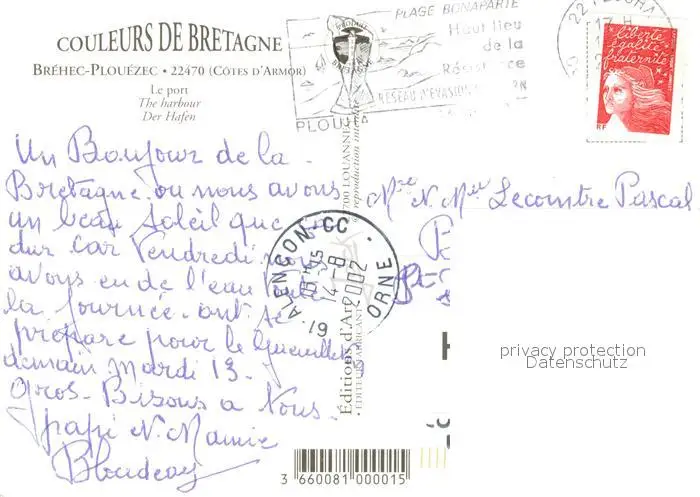 COULEURS DE BRETAGNE
BRÉHEC-PLOUÉZEC • 22470 (CÔTES D'ARMOR)
Le port
The harbour
Der Hafen
PLAGE BONAPARTE
Haut lieu
de la
Résistance
RÉSEAU D'ÉVASION
PLOUHA
22 PLOUHA
17 H
liberté
égalité
fraternité
RF
Un Bonjour de la
Bretagne ou nous avons
un beau Soleil que
dur Car Vendredi nous
avons eu de l'eau toute
la journée. ont se
prepare pour le
demain Mardi 13.
Gros. Bisous a Vous.
papi N. Mamie
Mre N. Mll Lecointre Pascal
61 ALENÇON-CC ORNE
14-8
2002
Éditions d'Art
reproduction interdite
privacy protection
Datenschutz
3 660081 000015